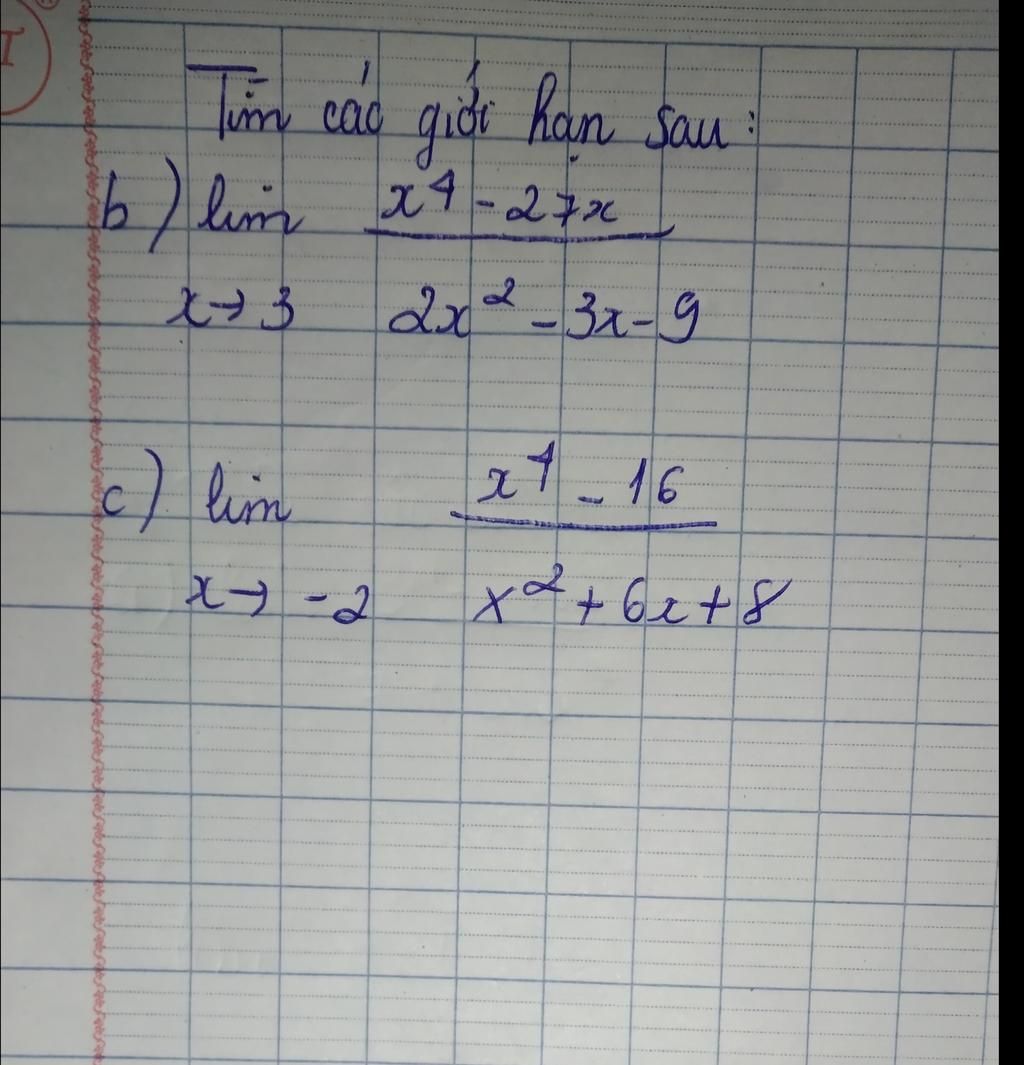 I
Tìm các giới hạn sau:
b) lim x⁴ - 27x
x→3 2x² - 3x - 9
c) lim x⁴ - 16
x→ -2 x² + 6x + 8